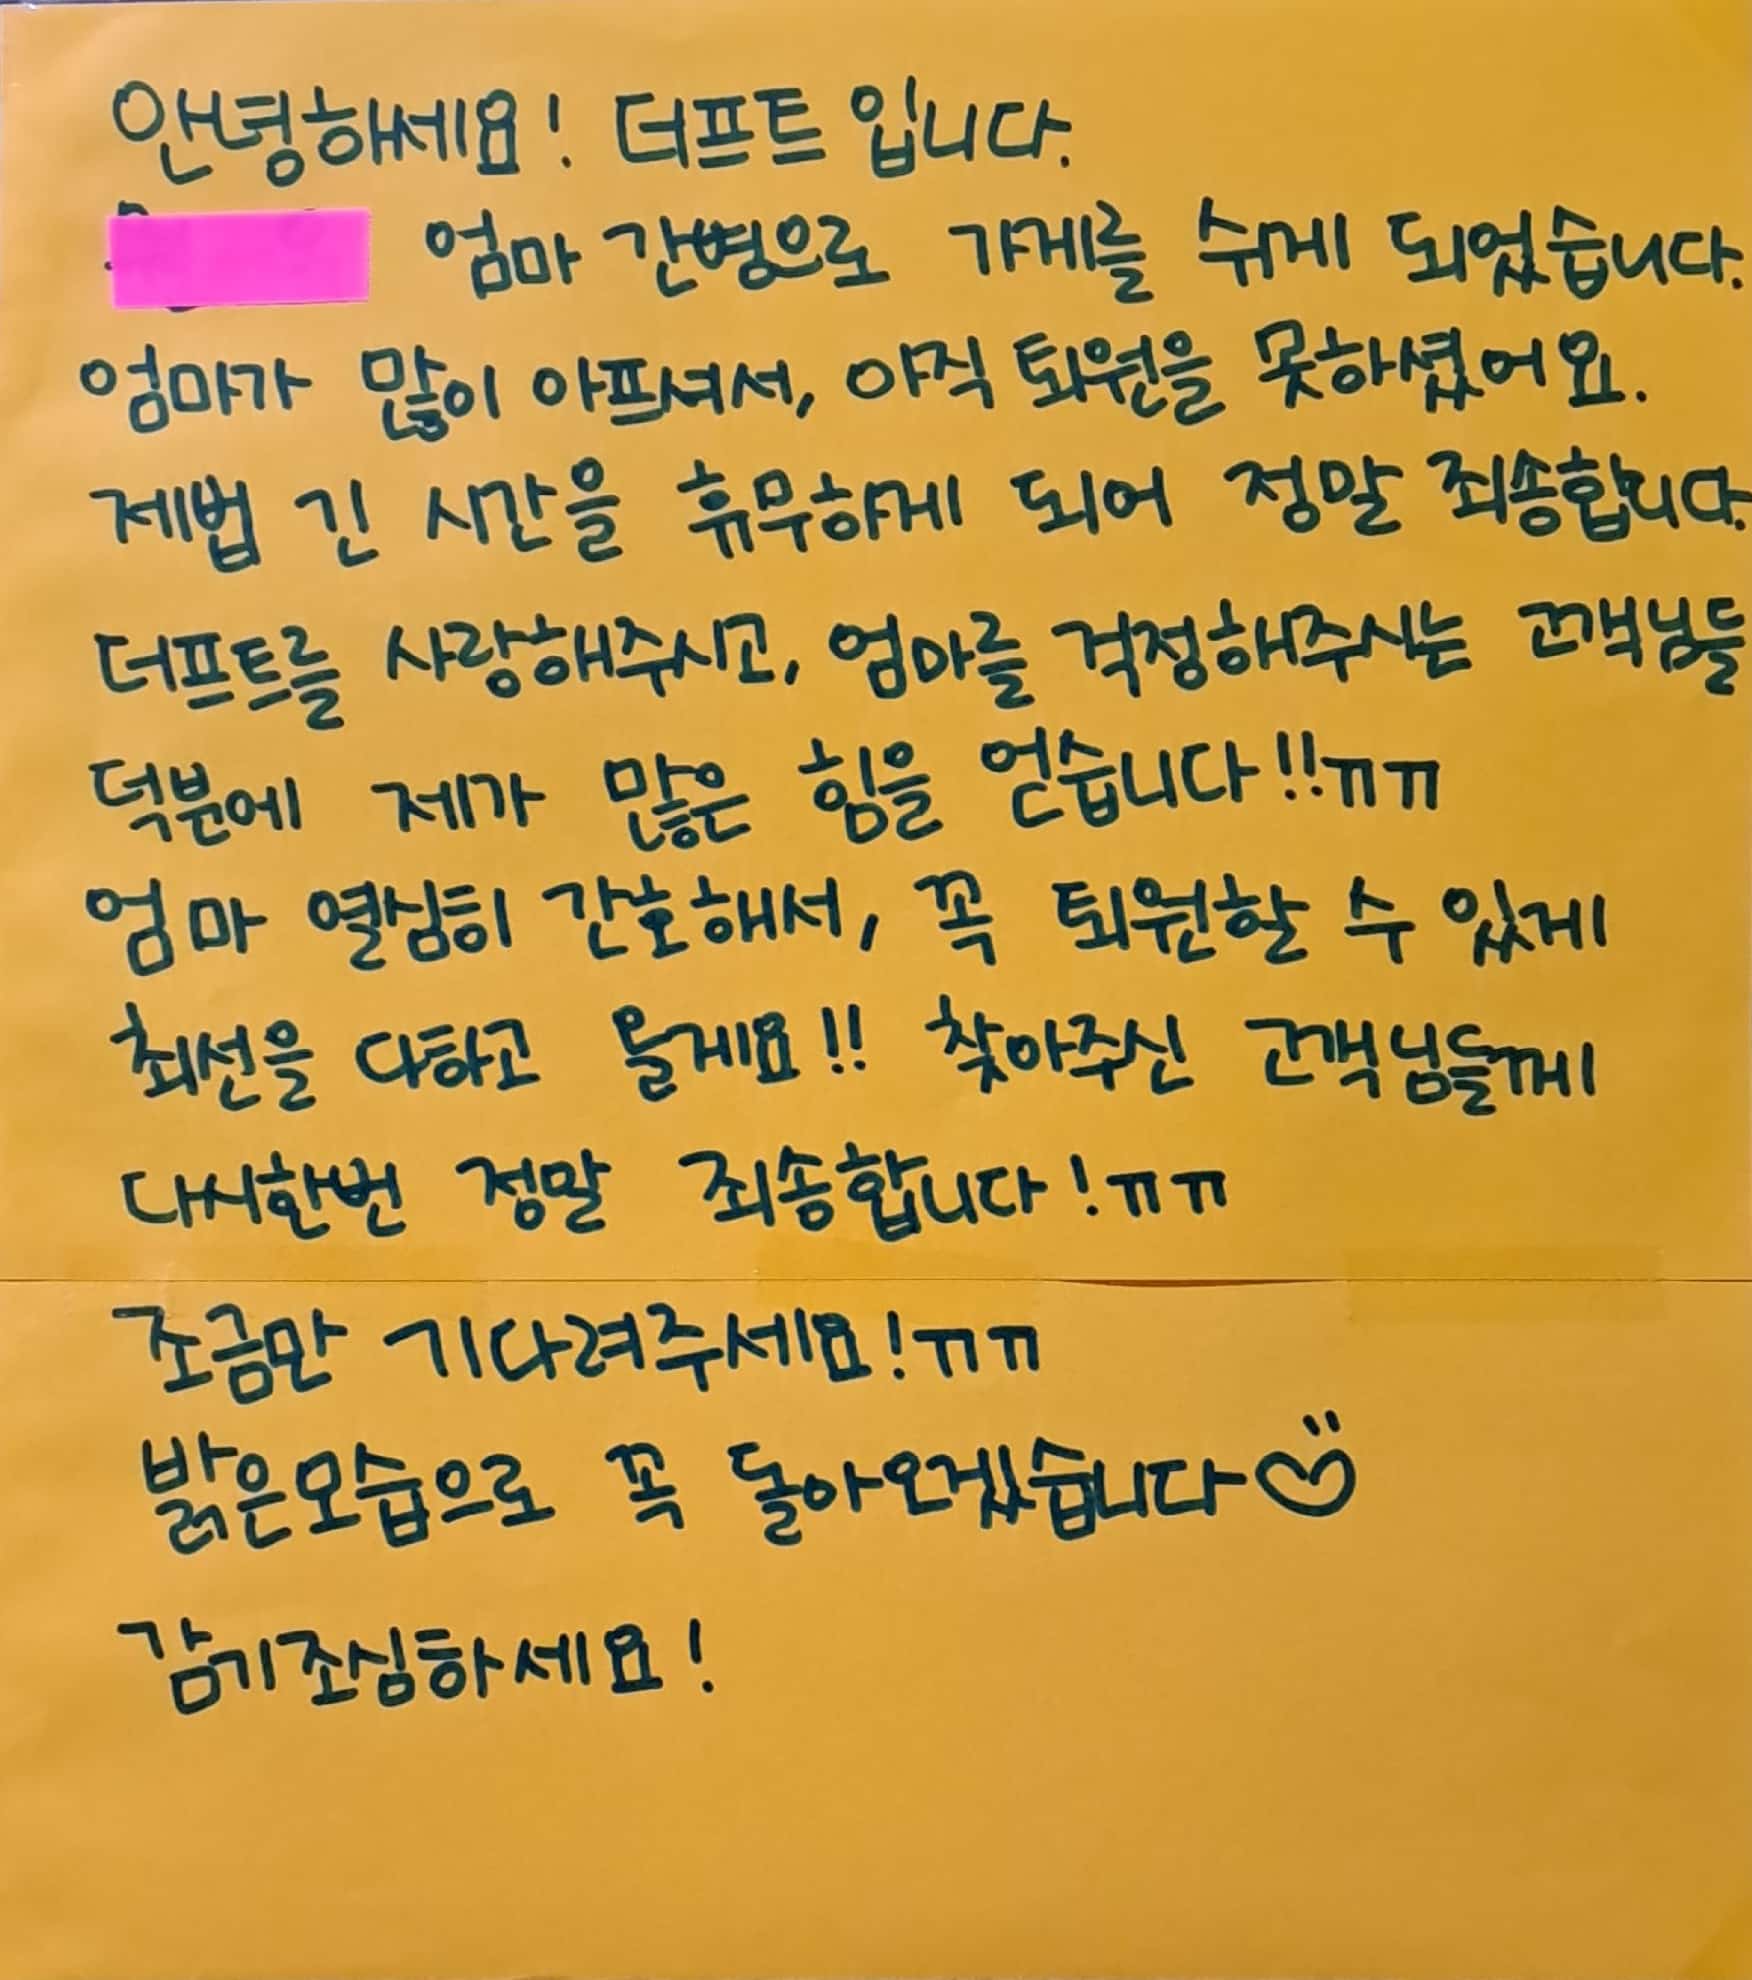 안녕하세요! 더프트 입니다.
엄마 간병으로 가게를 쉬게 되었습니다.
엄마가 많이 아프셔서, 아직 퇴원을 못하셨어요.
제법 긴 시간을 휴무하게 되어 정말 죄송합니다.
더프트를 사랑해주시고, 엄마를 걱정해주시는 고객님들
덕분에 제가 많은 힘을 얻습니다!!ㅠㅠ
엄마 열심히 간호해서, 꼭 퇴원할 수 있게
최선을 다하고 올게요!! 찾아주신 고객님들께
다시한번 정말 죄송합니다!ㅠㅠ
조금만 기다려주세요!ㅠㅠ
밝은모습으로 꼭 돌아오겠습니다
감기조심하세요!